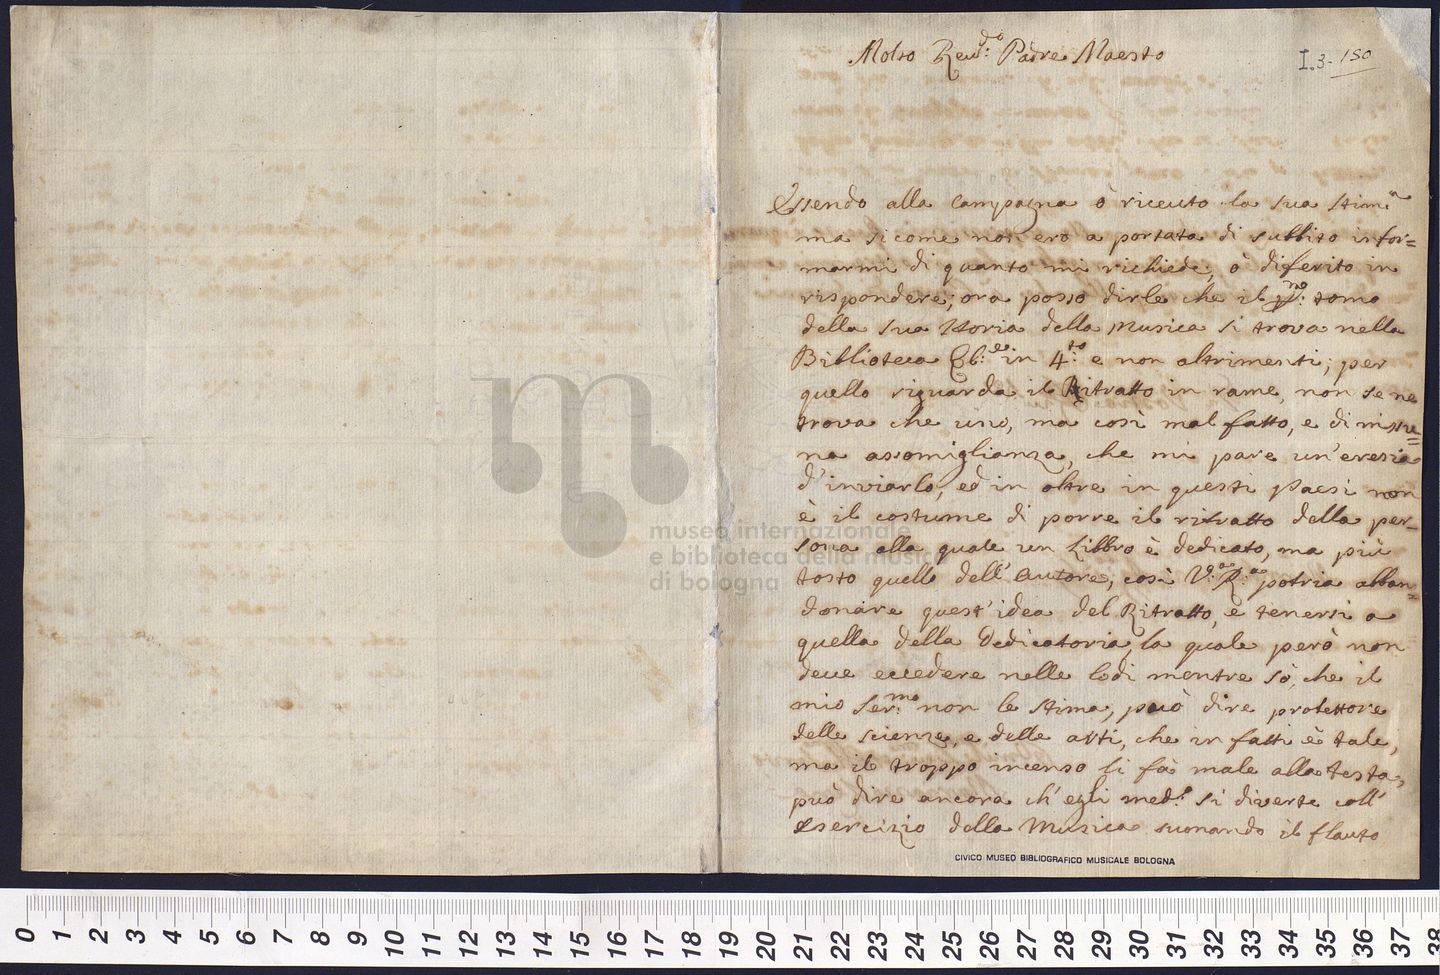 Molto Revdo: Padre Maesto
I.3-150
Essendo alla Campagna ò riceuto la sua stimma
ma sicome non ero a portata di subbito infor=
marmi di quanto mi richiede, ò diferito in
rispondere, ora posso dirle che il pmo: tomo
della sua Storia della Musica si trova nella
Biblioteca in 4:to e non altrimenti; per
quello riguarda il Ritratto in rame, non se ne
trova che uno, ma così mal fatto, e di nissu=
na assomiglianza, che mi pare un'eresia
d'inviarlo, ed in oltre in questi paesi non
è il costume di porre il ritratto della per=
sona alla quale un Libbro è dedicato, ma più
tosto quello dell'Autore, così V: R: potria abban=
donare quest'idea del Ritratto, e tenersi a
quella della Dedicatoria, la quale però non
deve eccedere nelle lodi mentre sò, che il
mio Ser:mo non le stima, può dire protettore
delle scienze, e delle arti, che in fatti è tale,
ma il troppo incenso li fà male alla testa,
può dire ancora ch'egli med:o si diverte coll'
esercizio della Musica suonando il flauto
CIVICO MUSEO BIBLIOGRAFICO MUSICALE BOLOGNA
museo internazionale
e biblioteca della musica
di bologna
0 1 2 3 4 5 6 7 8 9 10 11 12 13 14 15 16 17 18 19 20 21 22 23 24 25 26 27 28 29 30 31 32 33 34 35 36 37 38